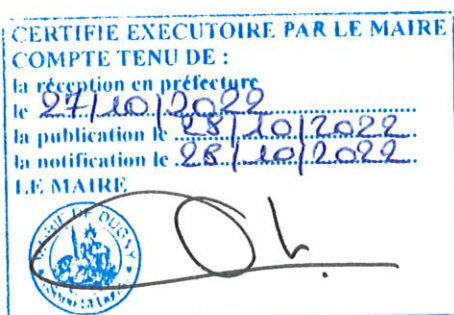 CERTIFIE EXECUTOIRE PAR LE MAIRE
COMPTE TENU DE :
la réception en préfecture
le 27/10/2022
la publication le 28/10/2022
la notification le 28/10/2022
LE MAIRE
MAIRIE DE DUGNY